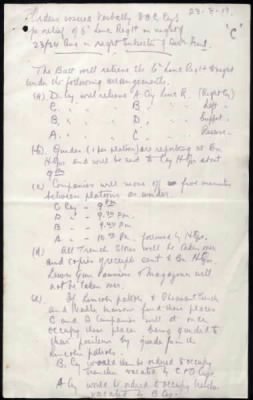 23-8-17.
"C"
Orders issued Verbally to O.C. Coys
for relief of 6th Linc Regt on night of
23/24 Aug in right Subsector of
The Battn will relieve the 6th Linc Regt tonight
under the following arrangements.
(a) D. Coy will relieve A Coy Linc R. (Right Coy)
C. " " B " left
B. " " D " Support
A. " " C " Reserve
(b) Guides (1 per platoon) are reporting at Bn
Hdqrs and will be sent to Coy Hdqrs about
8 PM
(c) Companies will move off five minutes
between platoons as under.
C Coy - 9 PM
D " - 9.20 PM.
B " - 9.40 PM
A " - 10 PM followed by Hdqrs.
(d) All Trench Stores will be taken over
and copies of receipts sent to Bn Hdqrs.
Lewis Gun Panniers & Magazines will
not be taken over.
(e) If Lincoln patrols
and find these places
C and A Companies will at once
occupy these places being guided to
their positions by guides from the
Lincoln patrols.
B. Coy would then be ordered to occupy
trenches vacated by C & D Coys
A Coy would be ordered to occupy trenches
vacated by B Coy.